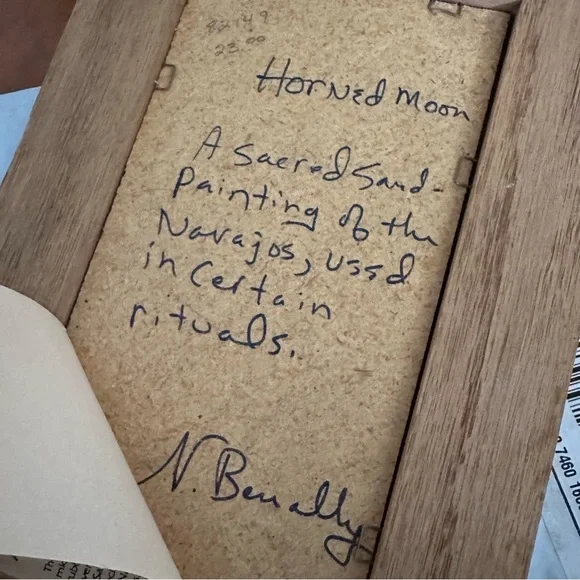 23.00
Horned Moon
A sacred Sand-
Painting of the
Navajos, used
in Certain
rituals.
N. Benally
7460